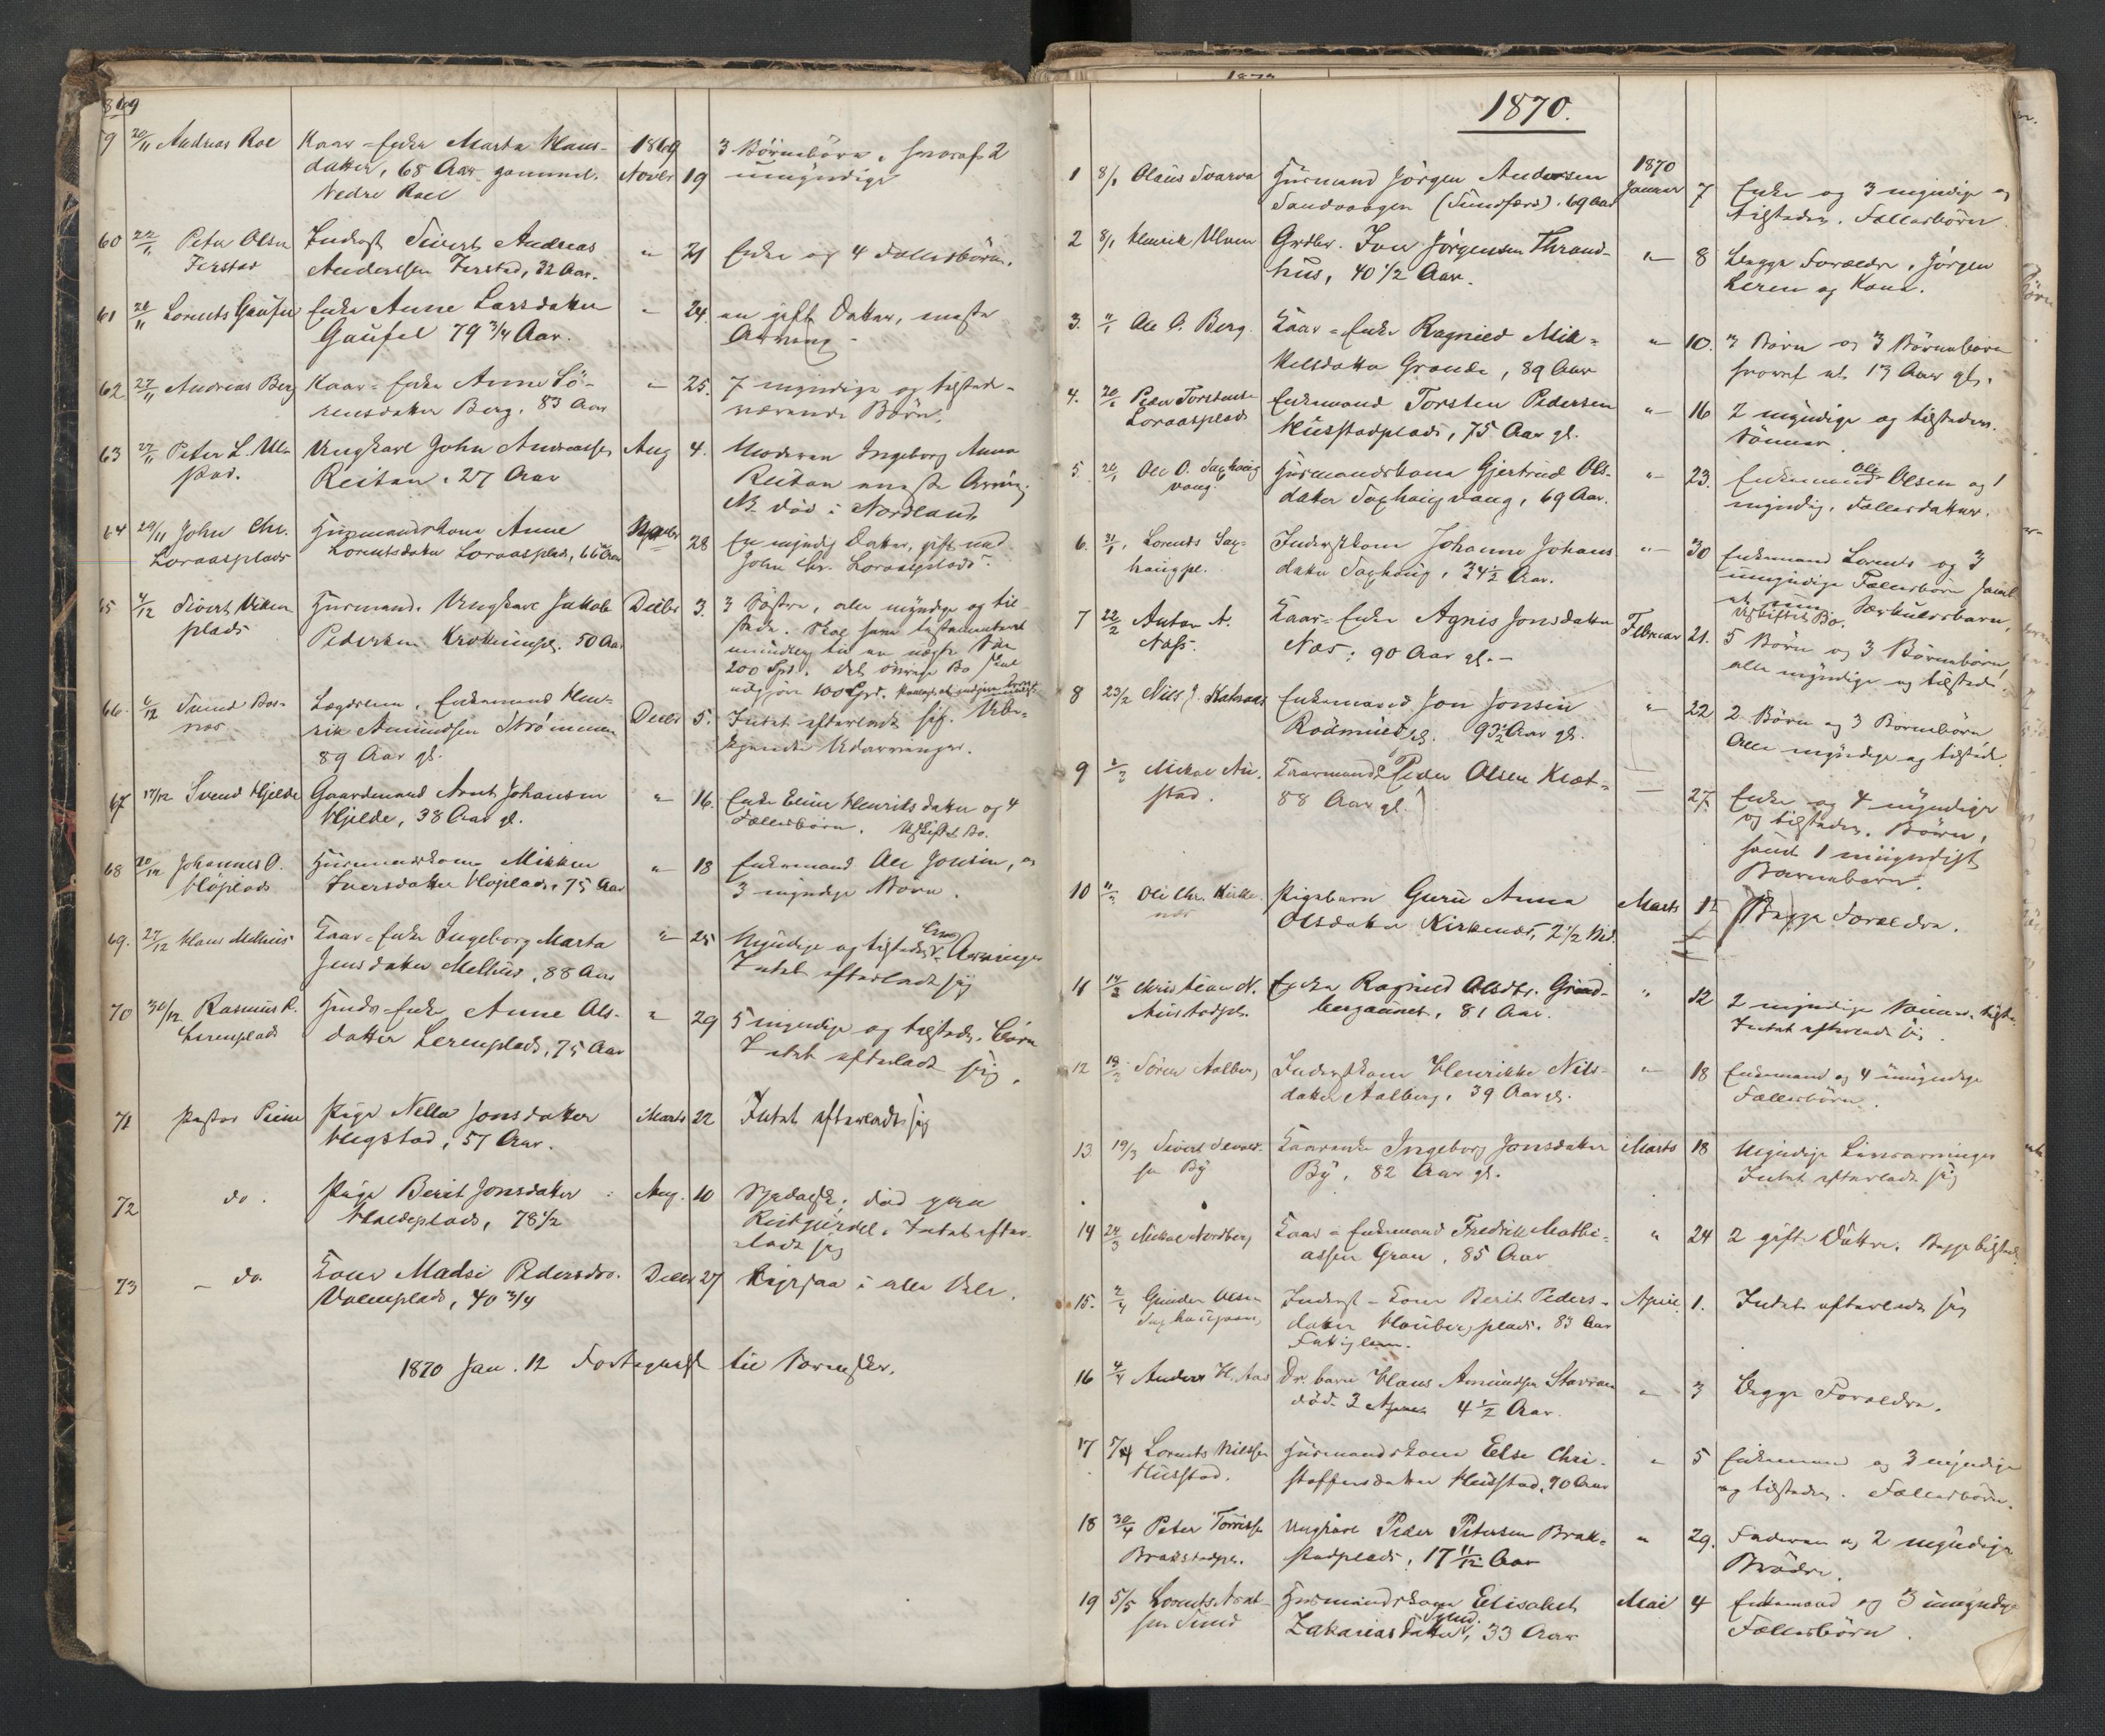 869
9 20/11 Andreas Roe Kaar-Enke Marta Hans- 1869 3 Börnebörn, hvoraf 2
datter, 68 Aar gammel. Novbr 19 umyndige
Nedre Roel
60 22/11 Peter Olsen Inderst Sivert Andreas " 21 Enke og 4 Fællesbörn.
Jerstad Anderssen Jerstad, 32 Aar.
61 26/11 Lorents Gaufsel Enke Anne Larsdatter " 24. en gift Datter, næste
Gaufsel 79 3/4 Aar. Arving
62 27/11 Andreas Berg Kaar-Enke Anne Sö- " 25. 7 myndige og tilstede-
rensdatter Berg, 83 Aar værende Börn.
63 27/11 Peter L. Ul- Ungkarl John Andreassen Aug 4. Moderen Ingeborg Anna
stad. Reitan, 27 Aar Reitan næste Arving.
NB död i Nordland
64 29/11 John Chr. Huusmandskone Anne Novbr 28 En myndig Datter, gift med
Loraasplads Lorentsdatter Loraasplads, 66 Aar John Chr. Loraasplads.
65 4/12 Sivert Viken Huusmand. Ungkarl Jakob Decbr 3. 3 Söstre, alle myndige og til-
plads Pedersen 50 Aar stede. Skal have testamenteret
mundtlig til en
200 Spd. Det övrige Bo skal
udgjöre 100 Spd.
66. 6/12 Lægdslem, Enkemand Hen- Decbr 5. Intet efterladt sig. Ube-
rik Amundsen Strömmen kjendte Udarvinger.
89 Aar gl.
67 17/12 Svend Hjelde Gaardmand Arnt Johansen " 16. Enke Eline Henriksdatter og 4
Hjelde, 38 Aar gl. Fællesbörn. Uskiftet Bo.
68 20/12 Johannes O. Huusmandskone Mikken " 18 Enkemand Ole Jonsen, og
Höjplads Iversdatter Höjplads, 75 Aar 3 myndige Börn.
69. 27/12 Hans Melhus Kaar-Enke Ingeborg Marta " 25 Myndige og tilstedev. Livs Arvinger
Jensdatter Melhus, 88 Aar Intet efterladt sig
70 30/12 Rasmus R. Enke Anne Ols- " 29 5 myndige og tilstedev. Börn
Lerenplads datter Lerenplads, 75 Aar Intet efterladt sig.
71 Pastor Pige Nella Jonsdatter Marts 22 Intet efterladt sig
Hegstad, 57 Aar.
72 do. Pige Berit Jonsdatter Aug. 10 död paa
78 1/2 Intet efter-
ladt sig
73 – do Kone Madsi Pedersdtr. Decbr 27 Ligesaa i alle Dele.
40 3/4
1870 Jan. 12
1870.
1 8/1 Olaus Svarva Huusmand Jörgen Andersen 1870 Januar 7 Enke og 3 myndige og
Sandvaagen 69 Aar tilstedev. Fællesbörn
2 8/1 Henrik Ulven Grdbr. Jon Jörgensen Thrond- " 8 Begge Forældre, Jörgen
hus, 40 1/2 Aar. Leren og Kone.
3. 11/1 Ole O. Berg. Kaar-Enke Ragnild Mik- " 10. Börn og 3 Börnebörn
kelsdatter Grande, 89 Aar hvoraf et 13 Aar gl.
4. 20/1 Peder Torstensen Enkemand Torsten Pedersen " 16 2 myndige og tilstedev.
Loraasplads Husstadplads, 75 Aar gl. Sönner
5. 26/1 Ole O. Saxhaug Huusmandskone Gjertrud Ols- " 23. Enkemand Ole Olsen og 1
vang. datter Saxhaugvang, 69 Aar. myndig, Fællesdatter.
6. 31/1, Lorents Sax- Inderstkone Johanne Johans " 30 Enkemand Lorents og 3
haugpl. datter Saxhaug, 34 1/2 Aar. umyndige Fællesbörn samt
et Særkulsbarn,
Uskiftet Bo.
7 22/2 Anton A. Kaar-Enke Agnis Jonsdatter Februar 21. 5 Börn og 3 Börnebörn,
Næss. Næs. 90 Aar gl. – alle myndige og tilstede
8 23/2 Nils J. Enkemand Jon Jonsen " 22 2 Börn og 3 Börnebörn
93 1/2 Aar gl. Alle myndige og tilstede
9 2/3 Mikal Au- Kaarmand Peder Olsen — 27. Enke og 4 myndige
stad. 88 Aar gl. og tilstedev. Börn,
samt 1 myndigt
Barnebarn.
10 11/3 Ole Chr. Kirke- Pigebarn Guru Anna Marts Begge Forældre.
næs Olsdatter Kirkenæs, 2 1/2 Md.
11 14/3 Christian N. Enke Ragnild Olsdtr. Grind- " 12 2 myndige Sönner, tilste.
Austadpl. bergaunet, 81 Aar. Intet efterladt sig.
12 19/3 Sören Aalberg Inderstkone Henrikke Nils- " 18 Enkemand og 4 umyndige
datter Aalberg, 39 Aar gl. Fællesbörn.
13 19/3 Sivert Kaarenke Ingeborg Jonsdatter Marts 18 Myndige Livsarvinger
By By, 82 Aar gl. Intet efterladt sig
14 24/3 Mikal Nordberg Kaar-Enkemand Fredrik Mathi- " 24 2 gifte Döttre. Begge tilstede
assen Gran, 85 Aar
15. 2/4 Gunder Olsen Inderst-Kone Berit Peders- April 1. Intet efterladt sig
datter Haubergplads. 83 Aar
Fattiglem.
16 4/4 Anders H. Aas Dr. barn Hans Amundsen " 3 Begge Forældre.
död 3 4 1/2 Aar.
17 5/4 Lorents Nilssen Huusmandskone Else Chri- " 5 Enkemand og 3 myndige
Husstad. stoffersdatter Husstad, 70 Aar og tilstedev. Fællesbörn.
18 30/4 Peter Ungkarl Peder Petersen Brak- " 29. Faderen og 2 myndige
Brakstadpl. stadplads, 17 11/12 Aar Brödre.
19 5/5 Lorents Arnt- Huusmandskone Elisabet Mai 4 Enkemand og 3 umyndige
sen Sund Zakariasdatter Sund, 33 Aar Fællesbörn.